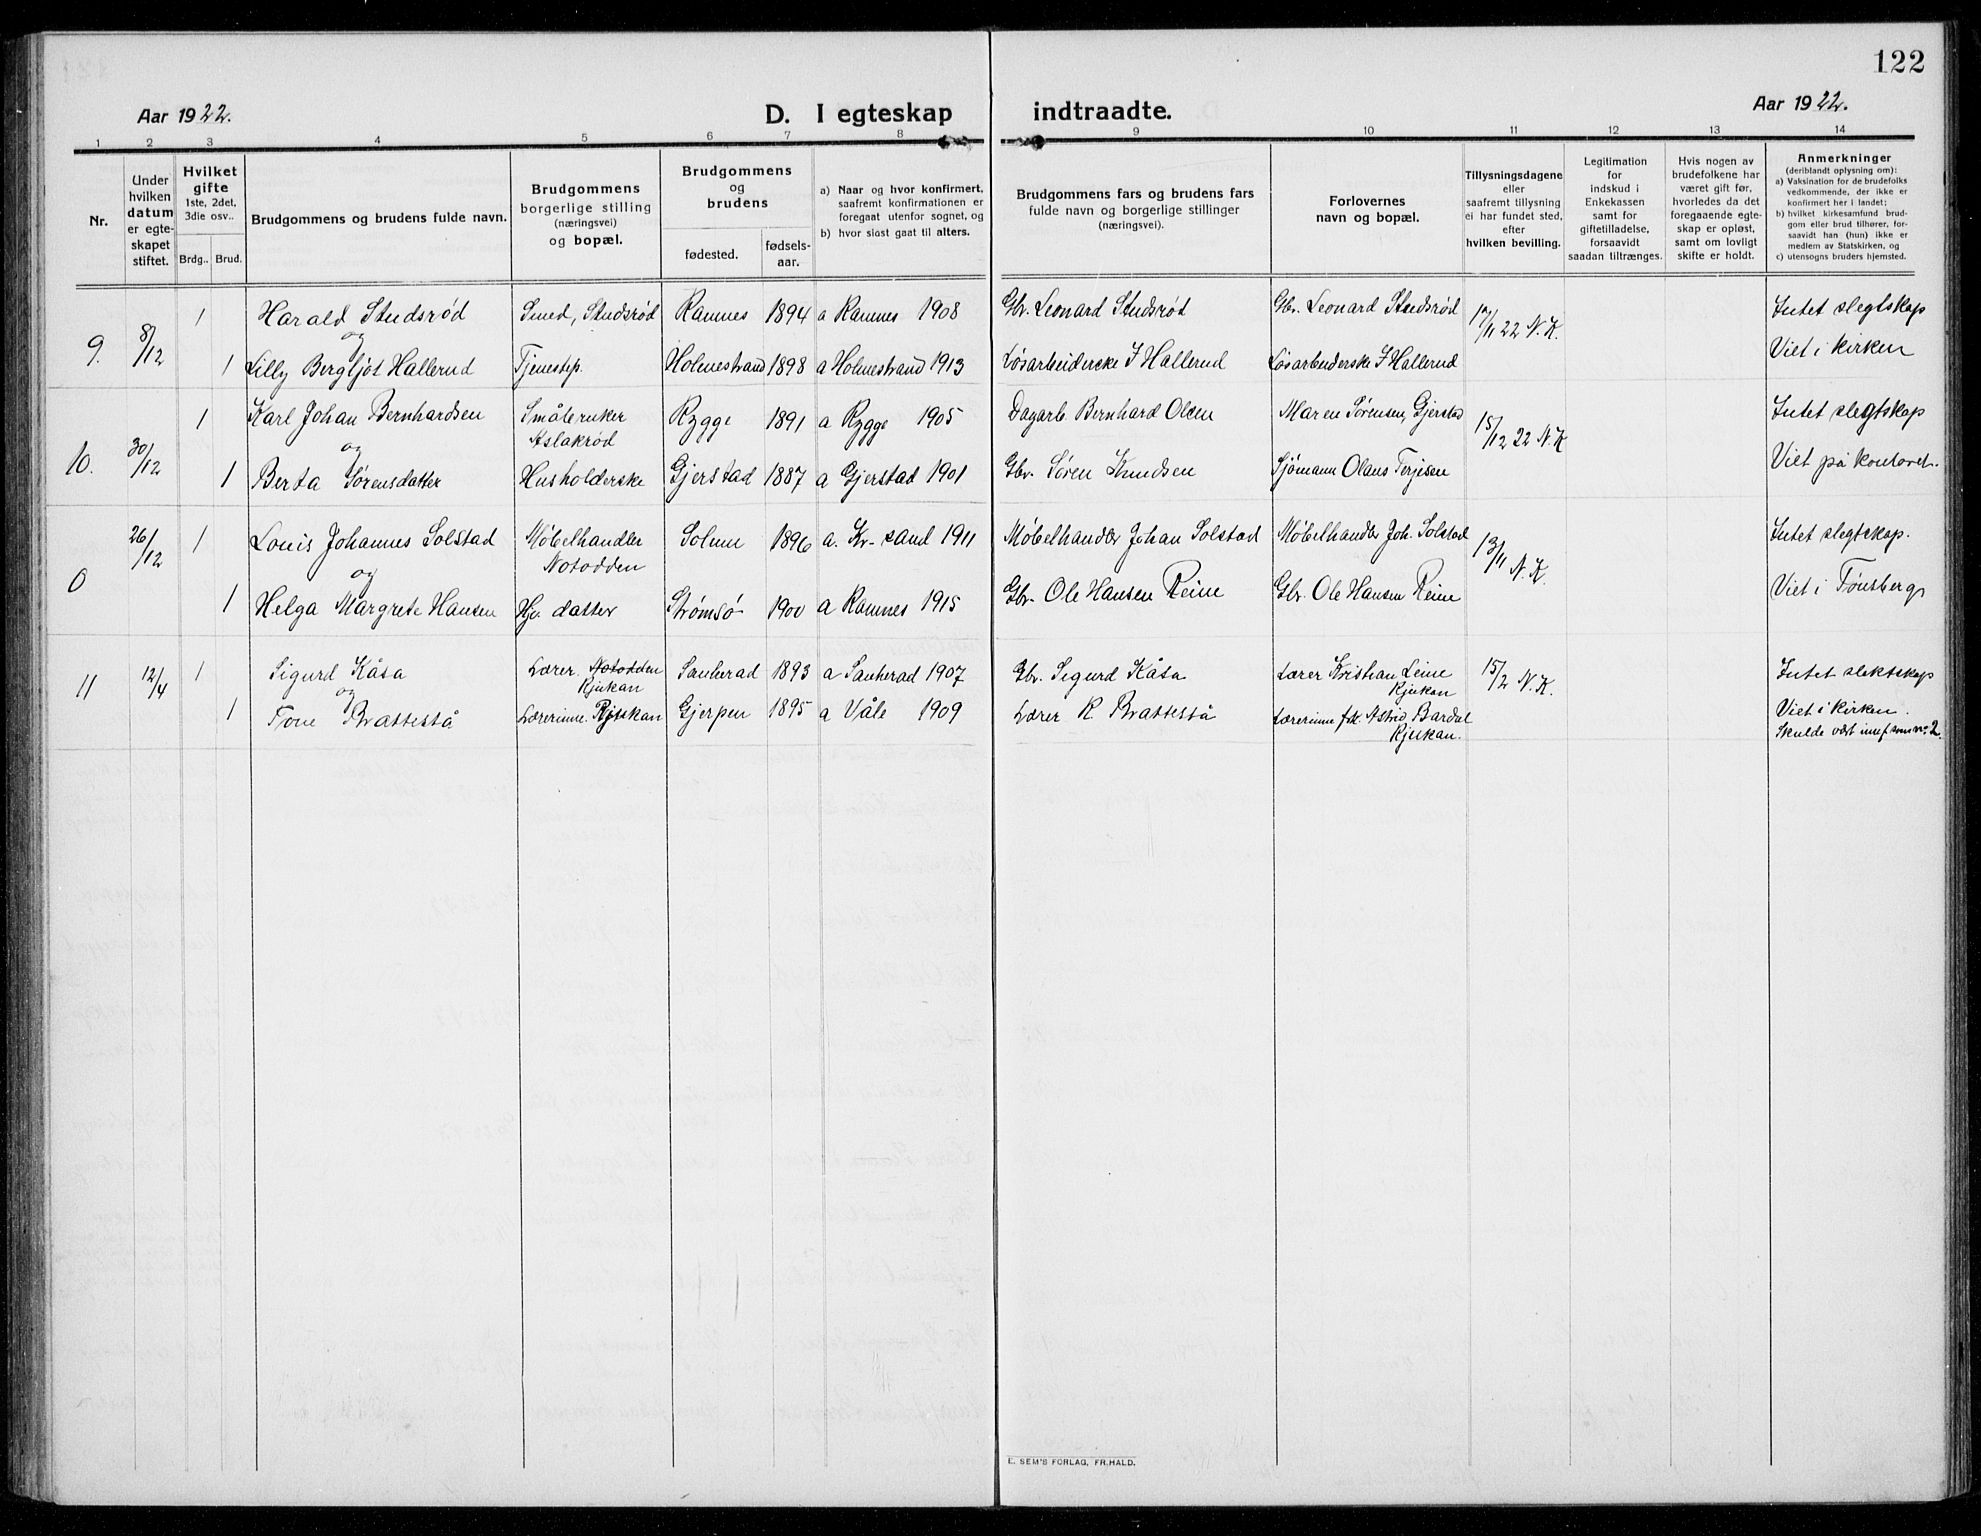 122
Aar 1922.
D. I egteskap indtraadte.
Aar 1922.
1 2 3 4 5 6 7 8 9 10 11 12 13 14
Nr.
Under hvilken datum er egteskapet stiftet.
Hvilket gifte 1ste, 2det, 3die osv..
Brdg.. Brud.
Brudgommens og brudens fulde navn.
Brudgommens borgerlige stilling (næringsvei) og bopæl.
Brudgommens og brudens
fødested.
fødsels-aar.
a) Naar og hvor konfirmert, saafremt konfirmationen er foregaat utenfor sognet, og
b) hvor sidst gaat til alters.
Brudgommens fars og brudens fars fulde navn og borgerlige stillinger (næringsvei).
Forlovernes navn og bopæl.
Tillysningsdagene eller saafremt tillysning ei har fundet sted, efter hvilken bevilling.
Legitimation for indskud i Enkekassen samt for giftetilladelse, forsaavidt saadan tiltrænges.
Hvis nogen av brudefolkene har været gift før, hvorledes da det foregaaende egteskap er opløst, samt om lovligt skifte er holdt.
Anmerkninger (deriblandt oplysning om):
a) Vaksination for de brudefolks vedkommende, der ikke er konfirmert her i landet;
b) hvilket kirkesamfund brudgom eller brud tilhører, forsaavidt han (hun) ikke er medlem av Statskirken, og
c) utensogns bruders hjemsted.
9. 8/12 1 Harald Studsrød Smed, Studsrød Ramnes 1894 a Ramnes 1908 Gbr. Leonard Studsrød Gbr. Leonard Studsrød 17/11 22 N.K. Intet slegtskap
og
1 Lilly Bergljot Hallerud Tjenestep. Holmestrand 1898 a Holmestrand 1913 Løsarbeiderske J Hallerud Løsarbeiderske J Hallerud Viet i kirken
10. 30/12 1 Karl Johan Bernhardsen Småbruker Aslakrød Rygge 1891 a Rygge 1905 Dagarb. Bernhard Olsen Maren Sørensen, Gjerstad 15/12 22 N.K Intet slegtskap
og
1 Berta Sørensdatter Husholderske Gjerstad 1887 a Gjerstad 1901 Gbr. Søren Knudsen Sjømann Olaus Terjesen Viet på kontoret.
0 26/12 1 Louis Johannes Solstad Møbelhandler Notodden Solum 1896 a. Kr-sand 1911 Møbelhandler Johan Solstad Møbelhandler Joh. Solstad 13/11 N.K. Intet slegtskap.
og
1 Helga Margrete Hansen Hjv. datter Strømsø 1900 a Ramnes 1915 Gbr. Ole Hansen Reine Gbr. Ole Hansen Reine Viet i Tønsberg
11 12/4 1 Sigurd Kåsa Lærer. Notodden Rjukan Sauherad 1893 a Sauherad 1907 Gbr. Sigurd Kåsa Lærer Kristian Leine Rjukan 15/2 N.K. Intet slektskap
og
1 Tone Brattestå Lærerinne. Rjukan Gjerpen 1895 a Våle 1909 Lærer K Brattestå Lærerinne frk. Astrid Bardal Rjukan. Viet i kirken.
Skulde vært innf som nr. 2.
E. SEM'S FORLAG, FR.HALD.